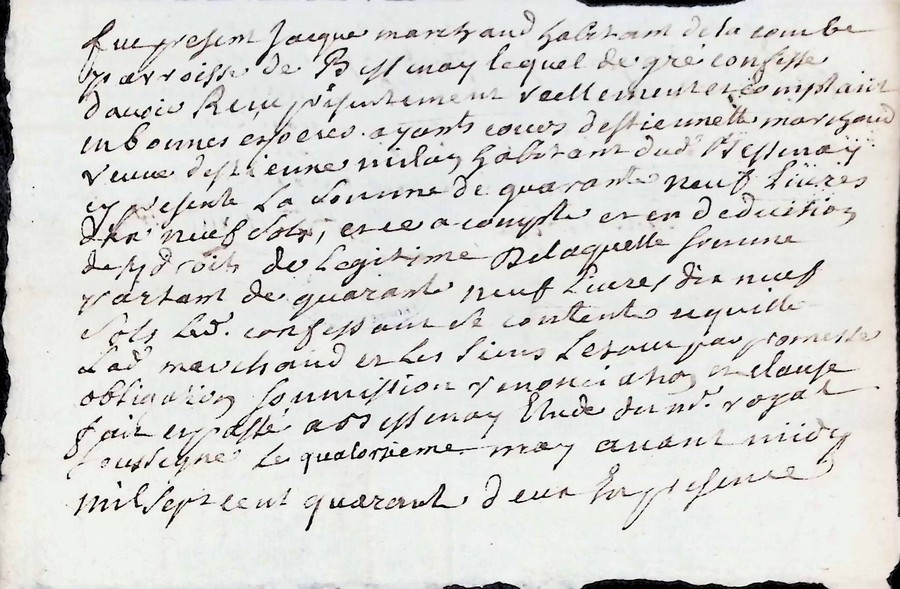 fut present Jacque marchand habitant de la combe
parroisse de Bessenay lequel de gré confesse
d'avoir Receu présentement reellement et comptant
en bonnes especes ayants cours d'estiennette marchand
veuve d'estienne nilay habitant dud. Bessenay
cy presente La somme de quarante neuf Livres
dix neuf sols, et ce a compte et en deduction
de sy droits de Legitime De laquelle somme
partant de quarante neuf Livres dix neuf
Sols Led. confessant se contente et quitte
Lad. marchand et Les siens Le tout par promesse
obligation soumission renonciation et clause
fait et passé a Bessenay Etude du no.re royal
soussigné Le quatorzieme may avant midy
mil sept cent quarante deux En presence